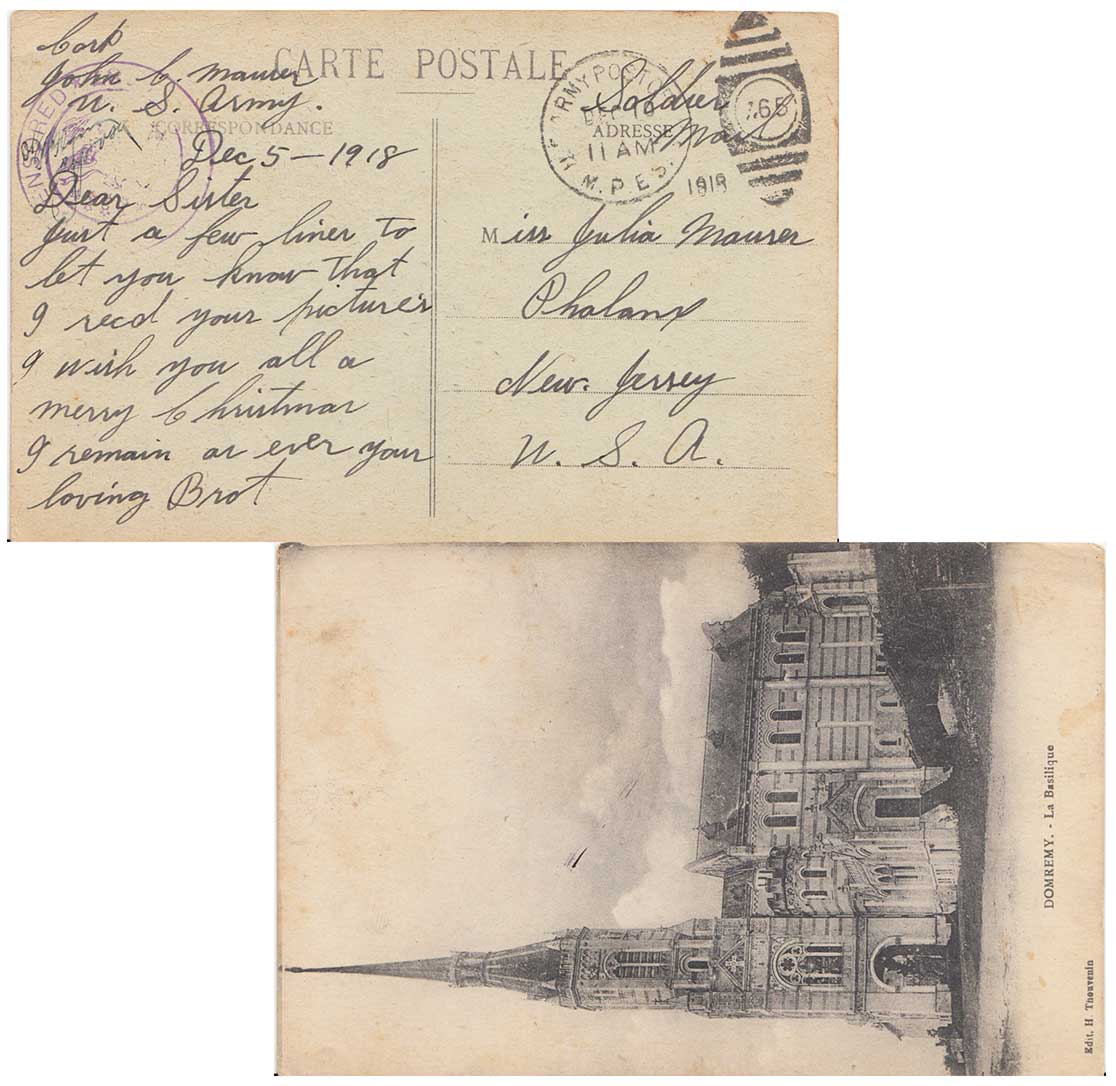 Corp
John C. Maurer
U. S. Army.
CARTE POSTALE
CORRESPONDANCE
CENSORED
Dec 5 - 1918
Dear Sister
Just a few lines to
let you know that
I recd your pictures
I wish you all a
merry Christmas
I remain as ever your
loving Brot
Soldier
Mail
ADRESSE
U.S. ARMY POST OFFICE
DEC 10
11 AM
M.P.E.S.
1918
765
Miss Julia Maurer
Phalanx
New. Jersey
U. S. A.
DOMREMY. - La Basilique
Edit. H. Thouvenin